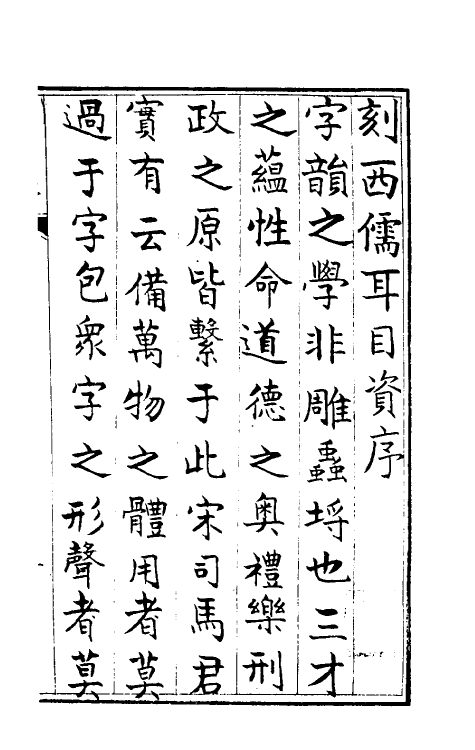 刻西儒耳目資序
字韻之學非雕蟲埒也三才
之蘊性命道德之奧禮樂刑
政之原皆繫于此宋司馬君
實有云備萬物之體用者莫
過于字包衆字之形聲者莫